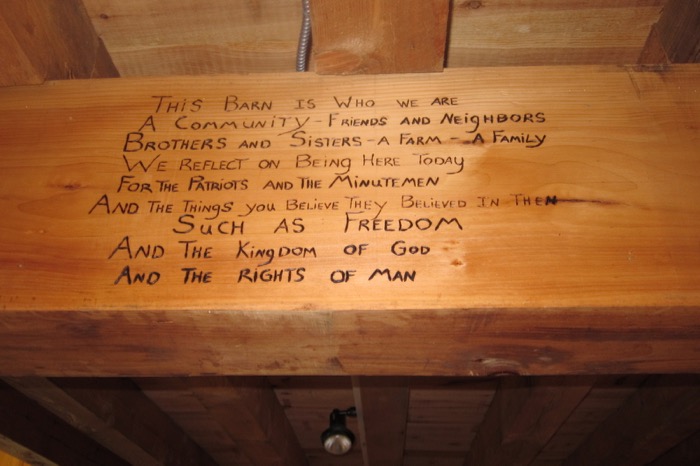 THIS BARN IS WHO WE ARE
A COMMUNITY - FRIENDS AND NEIGHBORS
BROTHERS AND SISTERS - A FARM - A FAMILY
WE REFLECT ON BEING HERE TODAY
FOR THE PATRIOTS AND THE MINUTEMEN
AND THE THINGS YOU BELIEVE THEY BELIEVED IN THEN
SUCH AS FREEDOM
AND THE KINGDOM OF GOD
AND THE RIGHTS OF MAN